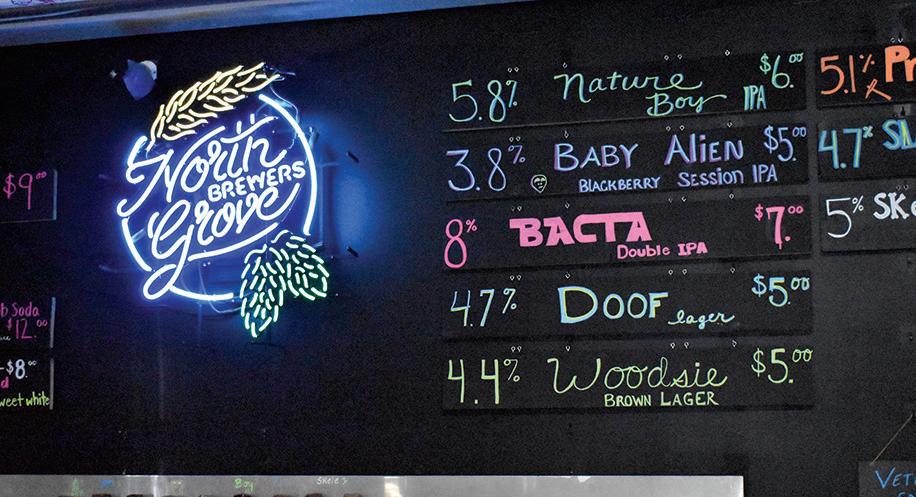 North
BREWERS
Grove
$9.00
b Soda
$12.00
$8.00
d
weet white
5.8% Nature Boy IPA $6.00
3.8% BABY ALIEN $5.00
BLACKBERRY SESSION IPA
8% BACTA $7.00
Double IPA
4.7% DOOF lager $5.00
4.4% Woodsie $5.00
BROWN LAGER
5.1% Pr
4.7%
5% SKe
Boy
Skele
VET